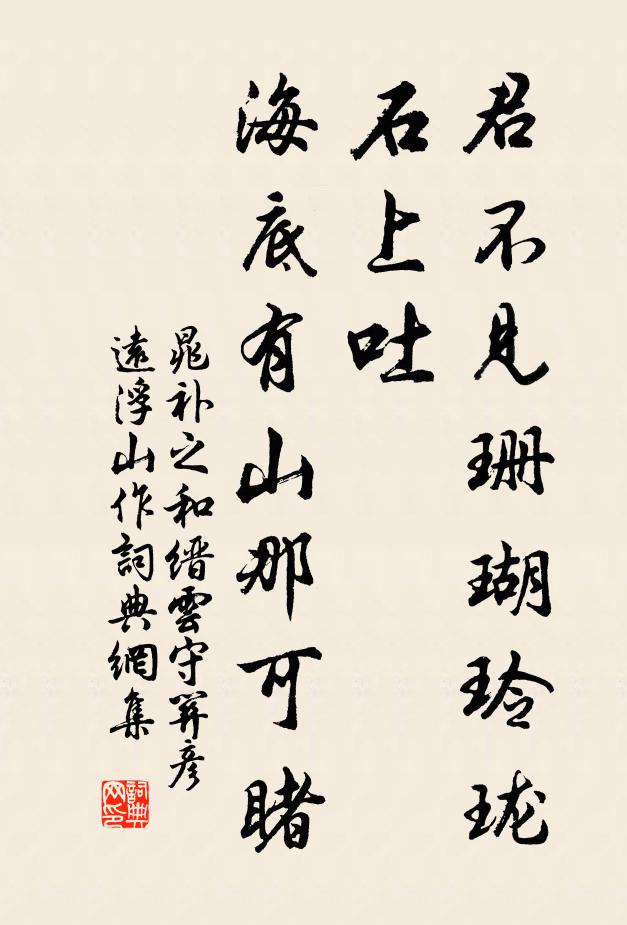 君不见珊瑚玲珑
石上吐
海底有山那可睹
晁补之和缙雲守关彦
遠浮山作詞典網集
詞典网印